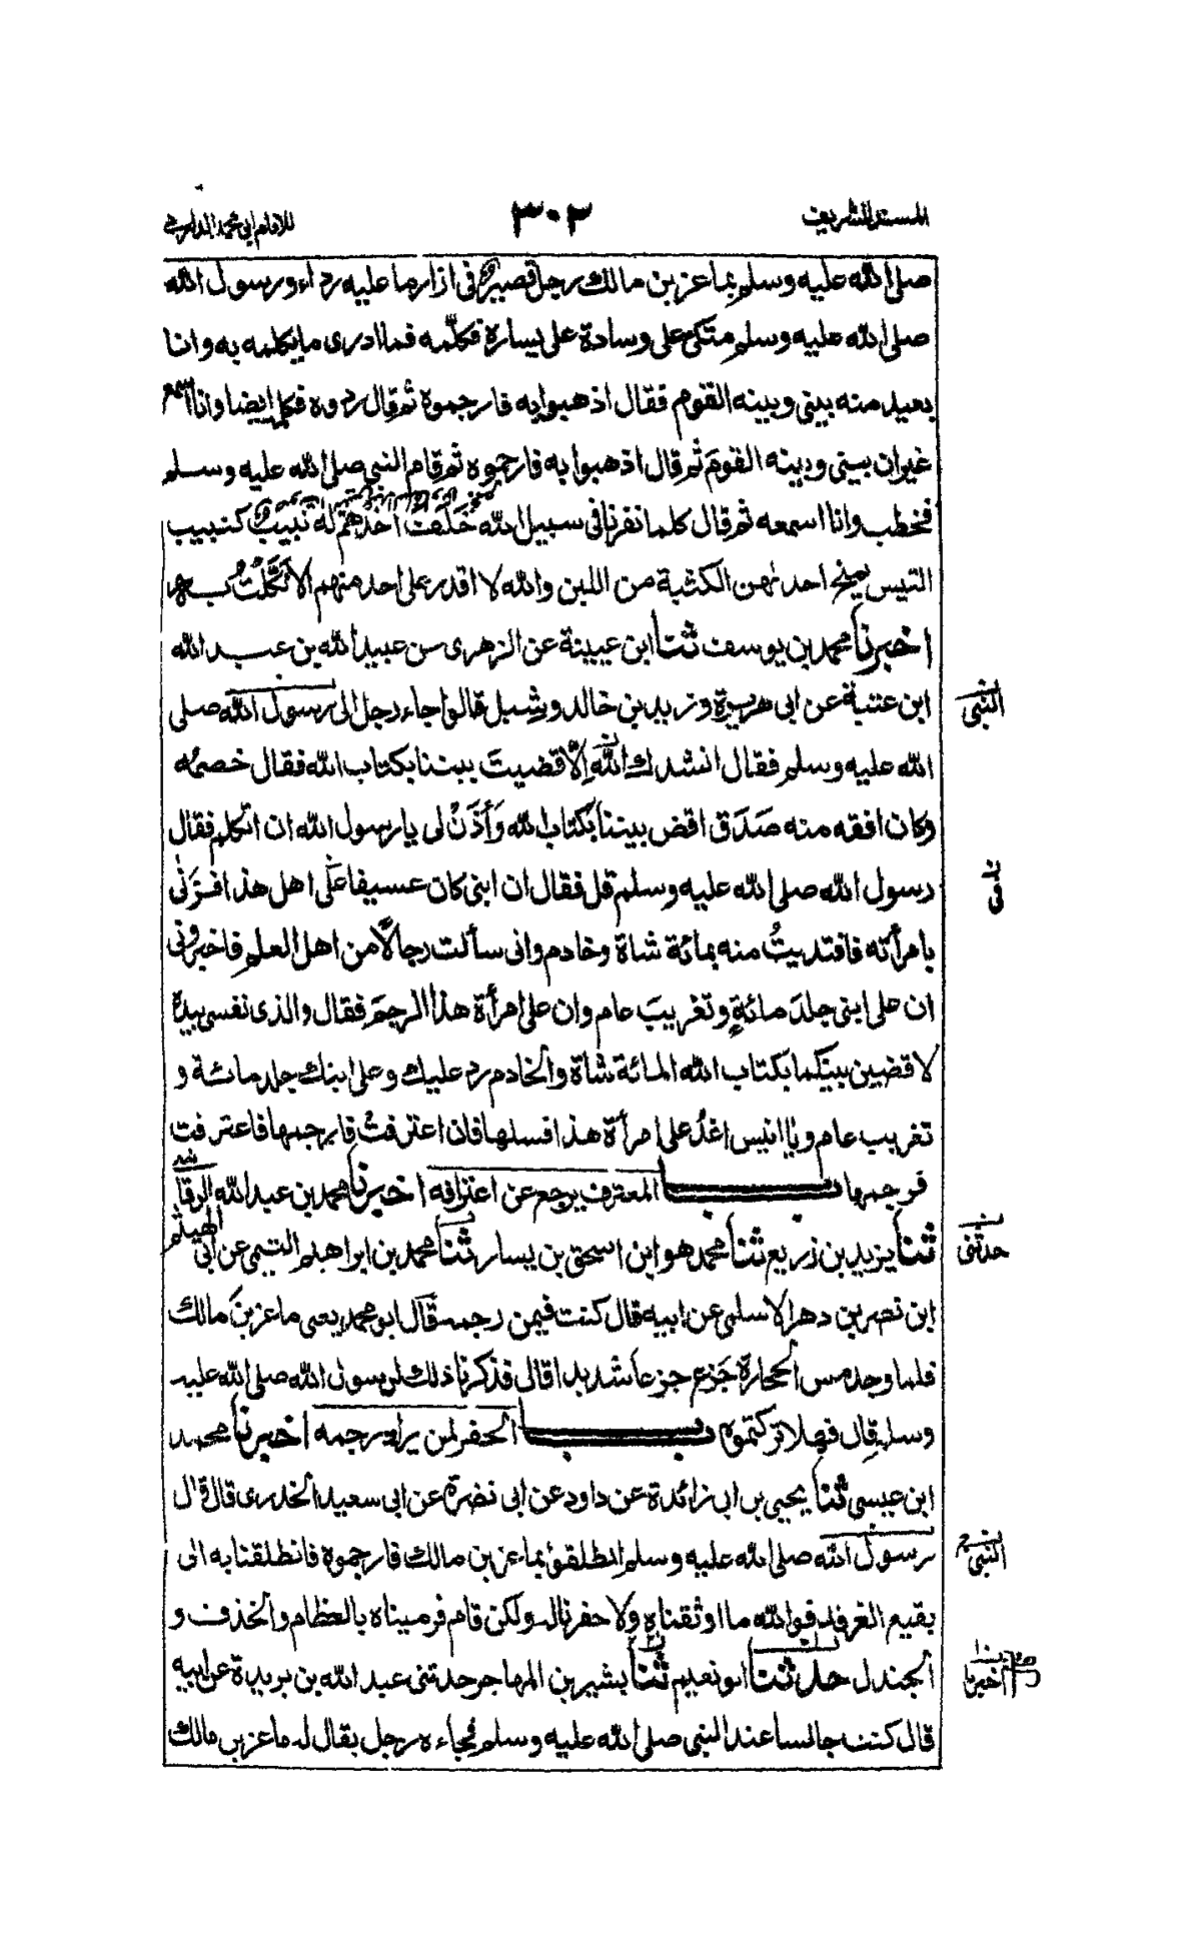 المسند الشريف
٣٠٢
للامام ابي محمد الدارمي
صلى الله عليه وسلم بماعز بن مالك رجل قصير في ازار ما عليه رداء ورسول الله
صلى الله عليه وسلم متكئ على وسادة على يساره فكلّمه فما ادرى ما يكلمه به وانا
بعيد منه بيني وبينه القوم فقال اذهبوا به فارجموه ثم قال ردوه فكلمه ايضا وانا اسمع
غير ان بيني وبينه القومَ ثم قال اذهبوا به فارجموه ثم قام النبي صلى الله عليه وسلم
فخطب وانا اسمعه ثم قال كلما نفرنا في سبيل الله خَلَفَ احدهم له نبيب كنبيب
التيس يمنح احدٰهن الكثبة من اللبن والله لا اقدر على احد منهم الا نَكَّلْتُ به
اخبرنا محمد بن يوسف ثنا ابن عيينة عن الزهرى عن عبيد الله بن عبد الله
ابن عتبة عن ابى هريرة وزيد بن خالد وشبل قالوا جاء رجل الى رسول الله صلى
النبي
الله عليه وسلم فقال انشدك الله الّا قضيت بيننا بكتاب الله فقال خصمُه
وكان افقه منه صَدَق اقض بيننا بكتاب الله وَأْذَنْ لى يا رسول الله ان اتكلم فقال
رسول الله صلى الله عليه وسلم قل فقال ان ابنى كان عسيفا على اهل هذا فزَنٰى
فى
بامرأته فافتديتُ منه بمائة شاة وخادم وانى سألت رجالًا من اهل العلم فاخبرونى
ان على ابنى جلدَ مائةٍ وتغريبَ عام وان على امرأة هذا الرجمَ فقال والذى نفسى بيده
لاقضين بينكما بكتاب الله المائة شاة والخادم رد عليك وعلى ابنك جلد مائة و
تغريب عام ويا انيس اغدُ على امرأة هذا فسلها فان اعترفتْ فارجمها فاعترفت
فرجمها باب المعترف يرجع عن اعترافه اخبرنا محمد بن عبد الله الرقاشى
ثنا يزيد بن زريع ثنا محمد هو ابن اسحق بن يسار ثنا محمد بن ابراهيم التيمى عن ابى الهيثم
حدثنى
ابن نصر بن دهر الاسلمى عن ابيه قال كنت فيمن رجمه قال ابو محمد يعنى ماعز بن مالك
فلما وجد مس الحجارة جَزِع جزعا شديدا قال فذكرنا ذلك لرسول الله صلى الله عليه
وسلم قال فهلا تركتموه باب الحفر لمن يراد رجمه اخبرنا محمد
ابن عيسى ثنا يحيى بن ابى زائدة عن داود عن ابى نضرة عن ابى سعيد الخدرى قال قال
رسول الله صلى الله عليه وسلم انطلقوا بماعز بن مالك فارجموه فانطلقنا به الى
النبي
بقيع الغرقد فوالله ما اوثقناه ولا حفرنا له ولكن قام فرميناه بالعظام والخذف و
الجندل حدثنا ابو نعيم ثنا بشير بن المهاجر حدثنى عبد الله بن بريدة عن ابيه
اخبرنا
قال كنت جالسا عند النبي صلى الله عليه وسلم فجاءه رجل يقال له ماعز بن مالك